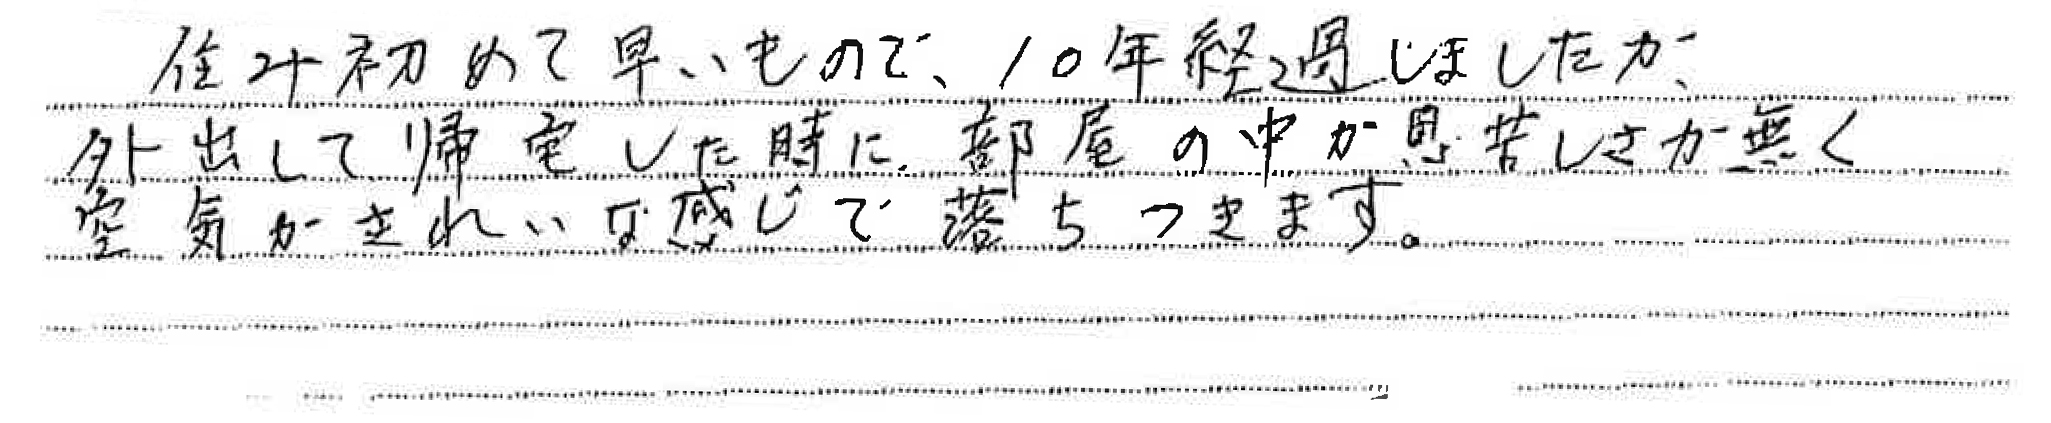 住み初めて早いもので、10年経過しましたが、
外出して帰宅した時に、部屋の中が息苦しさが無く
空気がきれいな感じで落ちつきます。